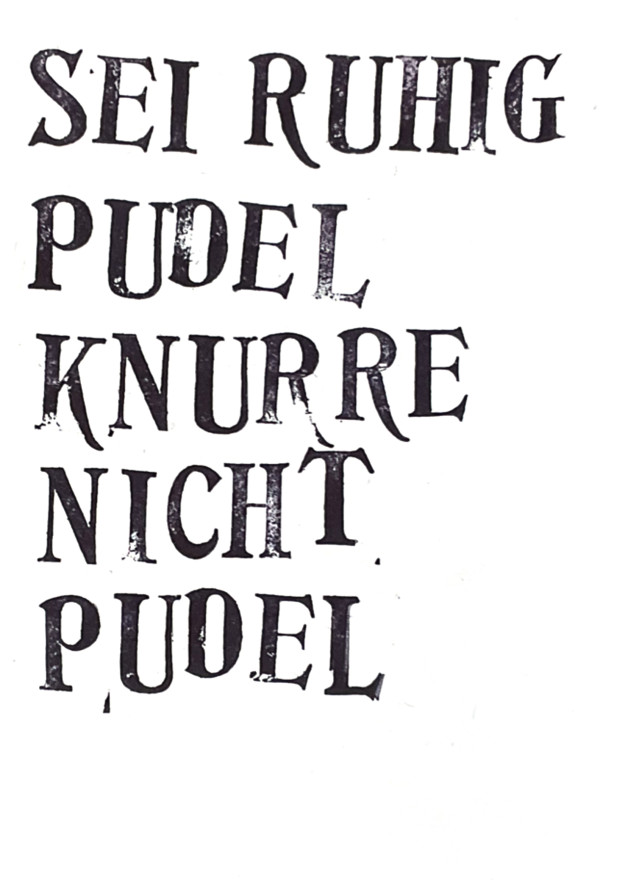 SEI RUHIG
PUDEL
KNURRE
NICHT
PUDEL